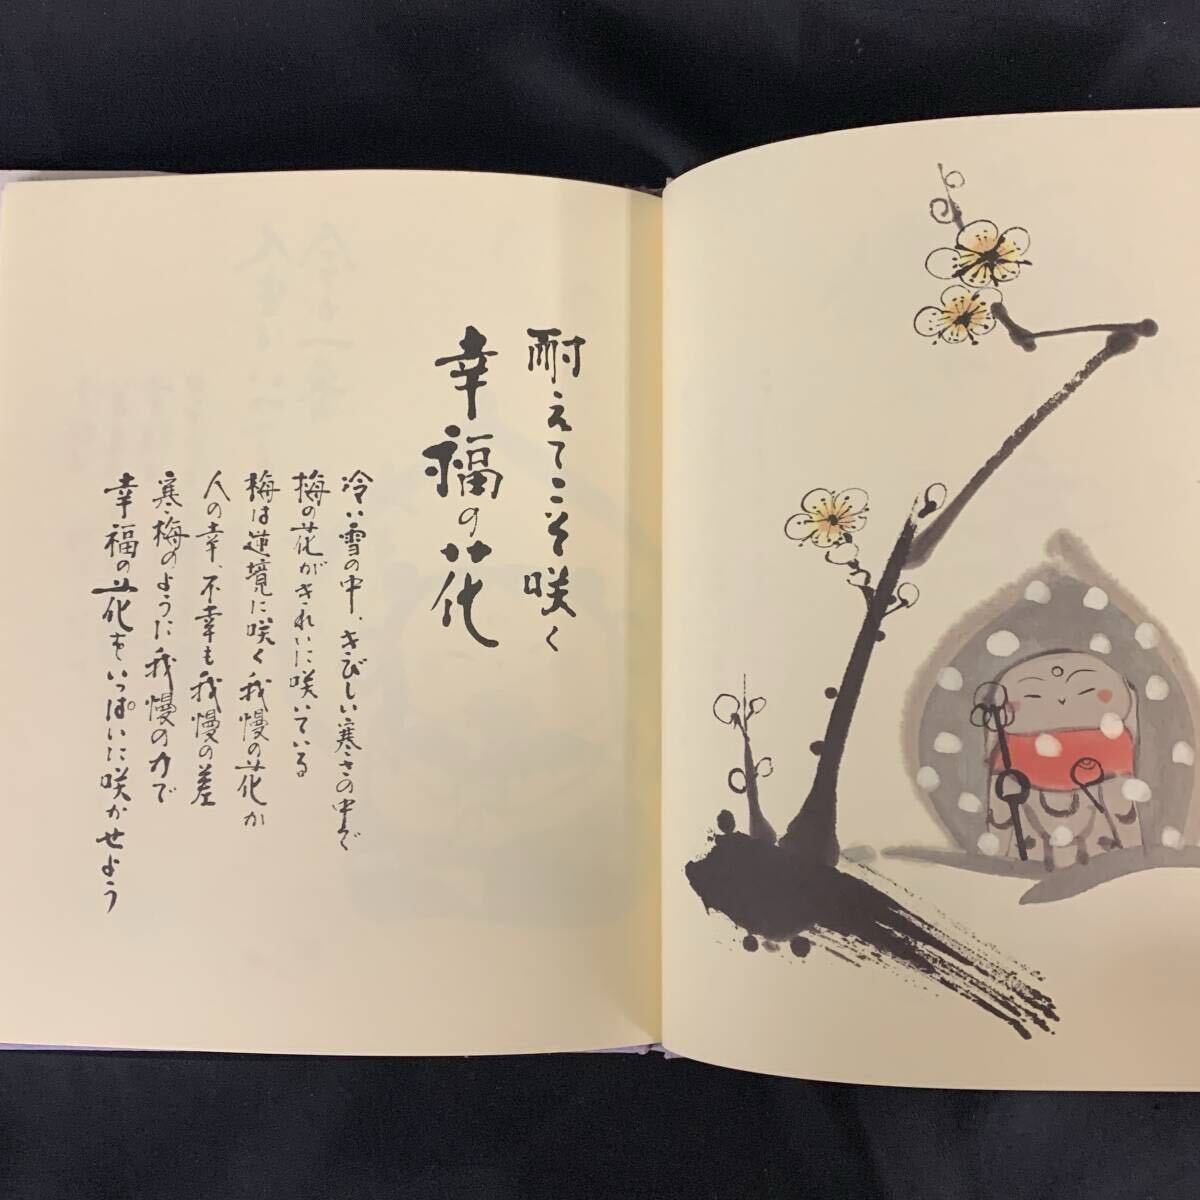 耐えてこそ咲く
幸福の花
冷い雪の中、きびしい寒さの中で
梅の花がきれいに咲いている
梅は逆境に咲く我慢の花か
人の幸、不幸も我慢の差
寒梅のように我慢の力で
幸福の花をいっぱいに咲かせよう